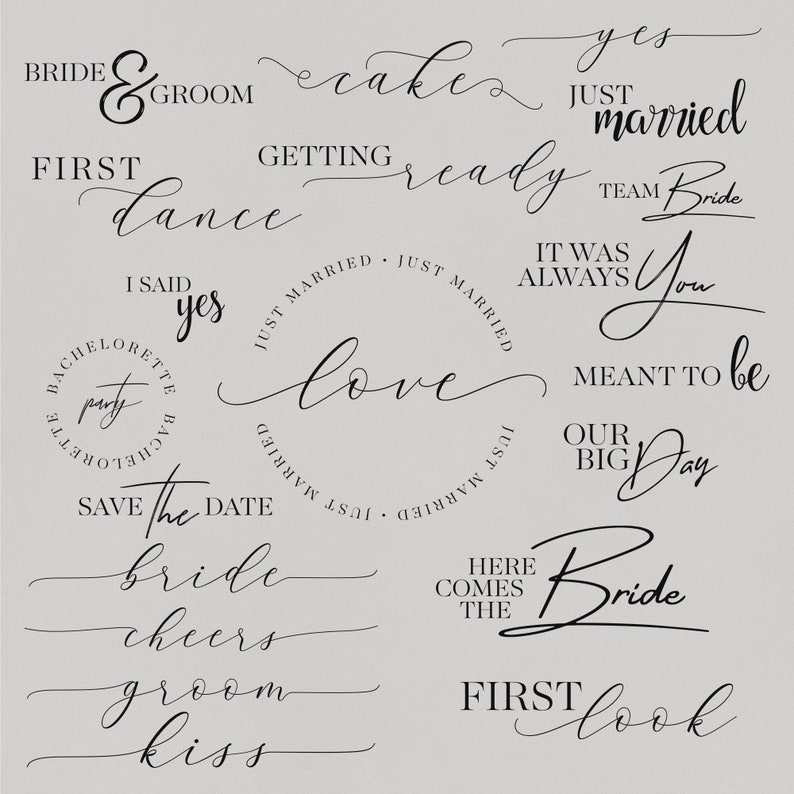 BRIDE & GROOM
cake
yes
JUST
married
FIRST
dance
GETTING ready
TEAM Bride
IT WAS
ALWAYS You
I SAID
yes
JUST MARRIED • JUST MARRIED
love
JUST MARRIED • JUST MARRIED
BACHELORETTE
party
BACHELORETTE
MEANT TO be
OUR
BIG Day
SAVE the DATE
bride
cheers
groom
kiss
HERE
COMES
THE Bride
FIRST look